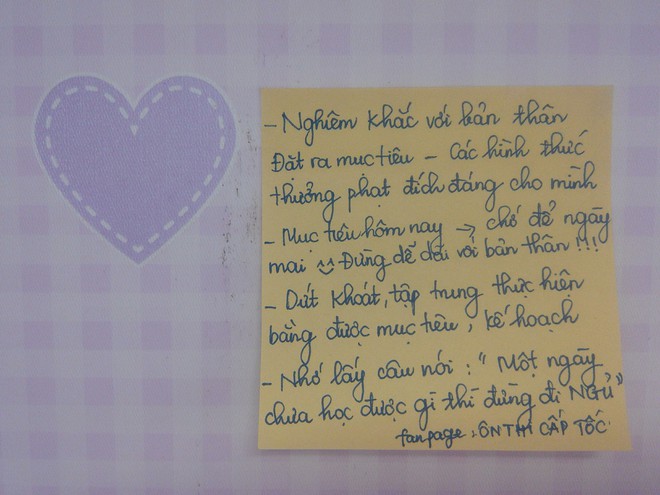 - Nghiêm khắc với bản thân
Đặt ra mục tiêu - Các hình thức
thưởng phạt đích đáng cho mình
- Mục tiêu hôm nay → chớ để ngày
mai Đừng dễ dãi với bản thân !!!
- Dứt khoát, tập trung thực hiện
bằng được mục tiêu, kế hoạch
- Nhớ lấy câu nói : " Một ngày
chưa học được gì thì đừng đi NGỦ"
fanpage : ÔN THI CẤP TỐC